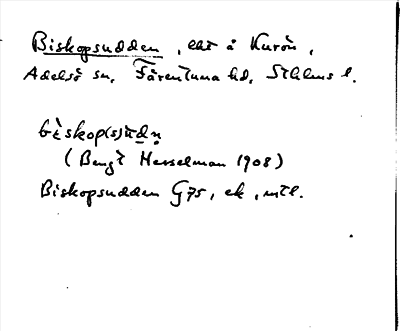 Biskopsudden, på Kurön,
Adelsö sn, Färentuna hd, Sthlms l.
bìskop(s)ùdn̥
(Bengt Hesselman 1908)
Biskopsudden G75, ek, mtl.